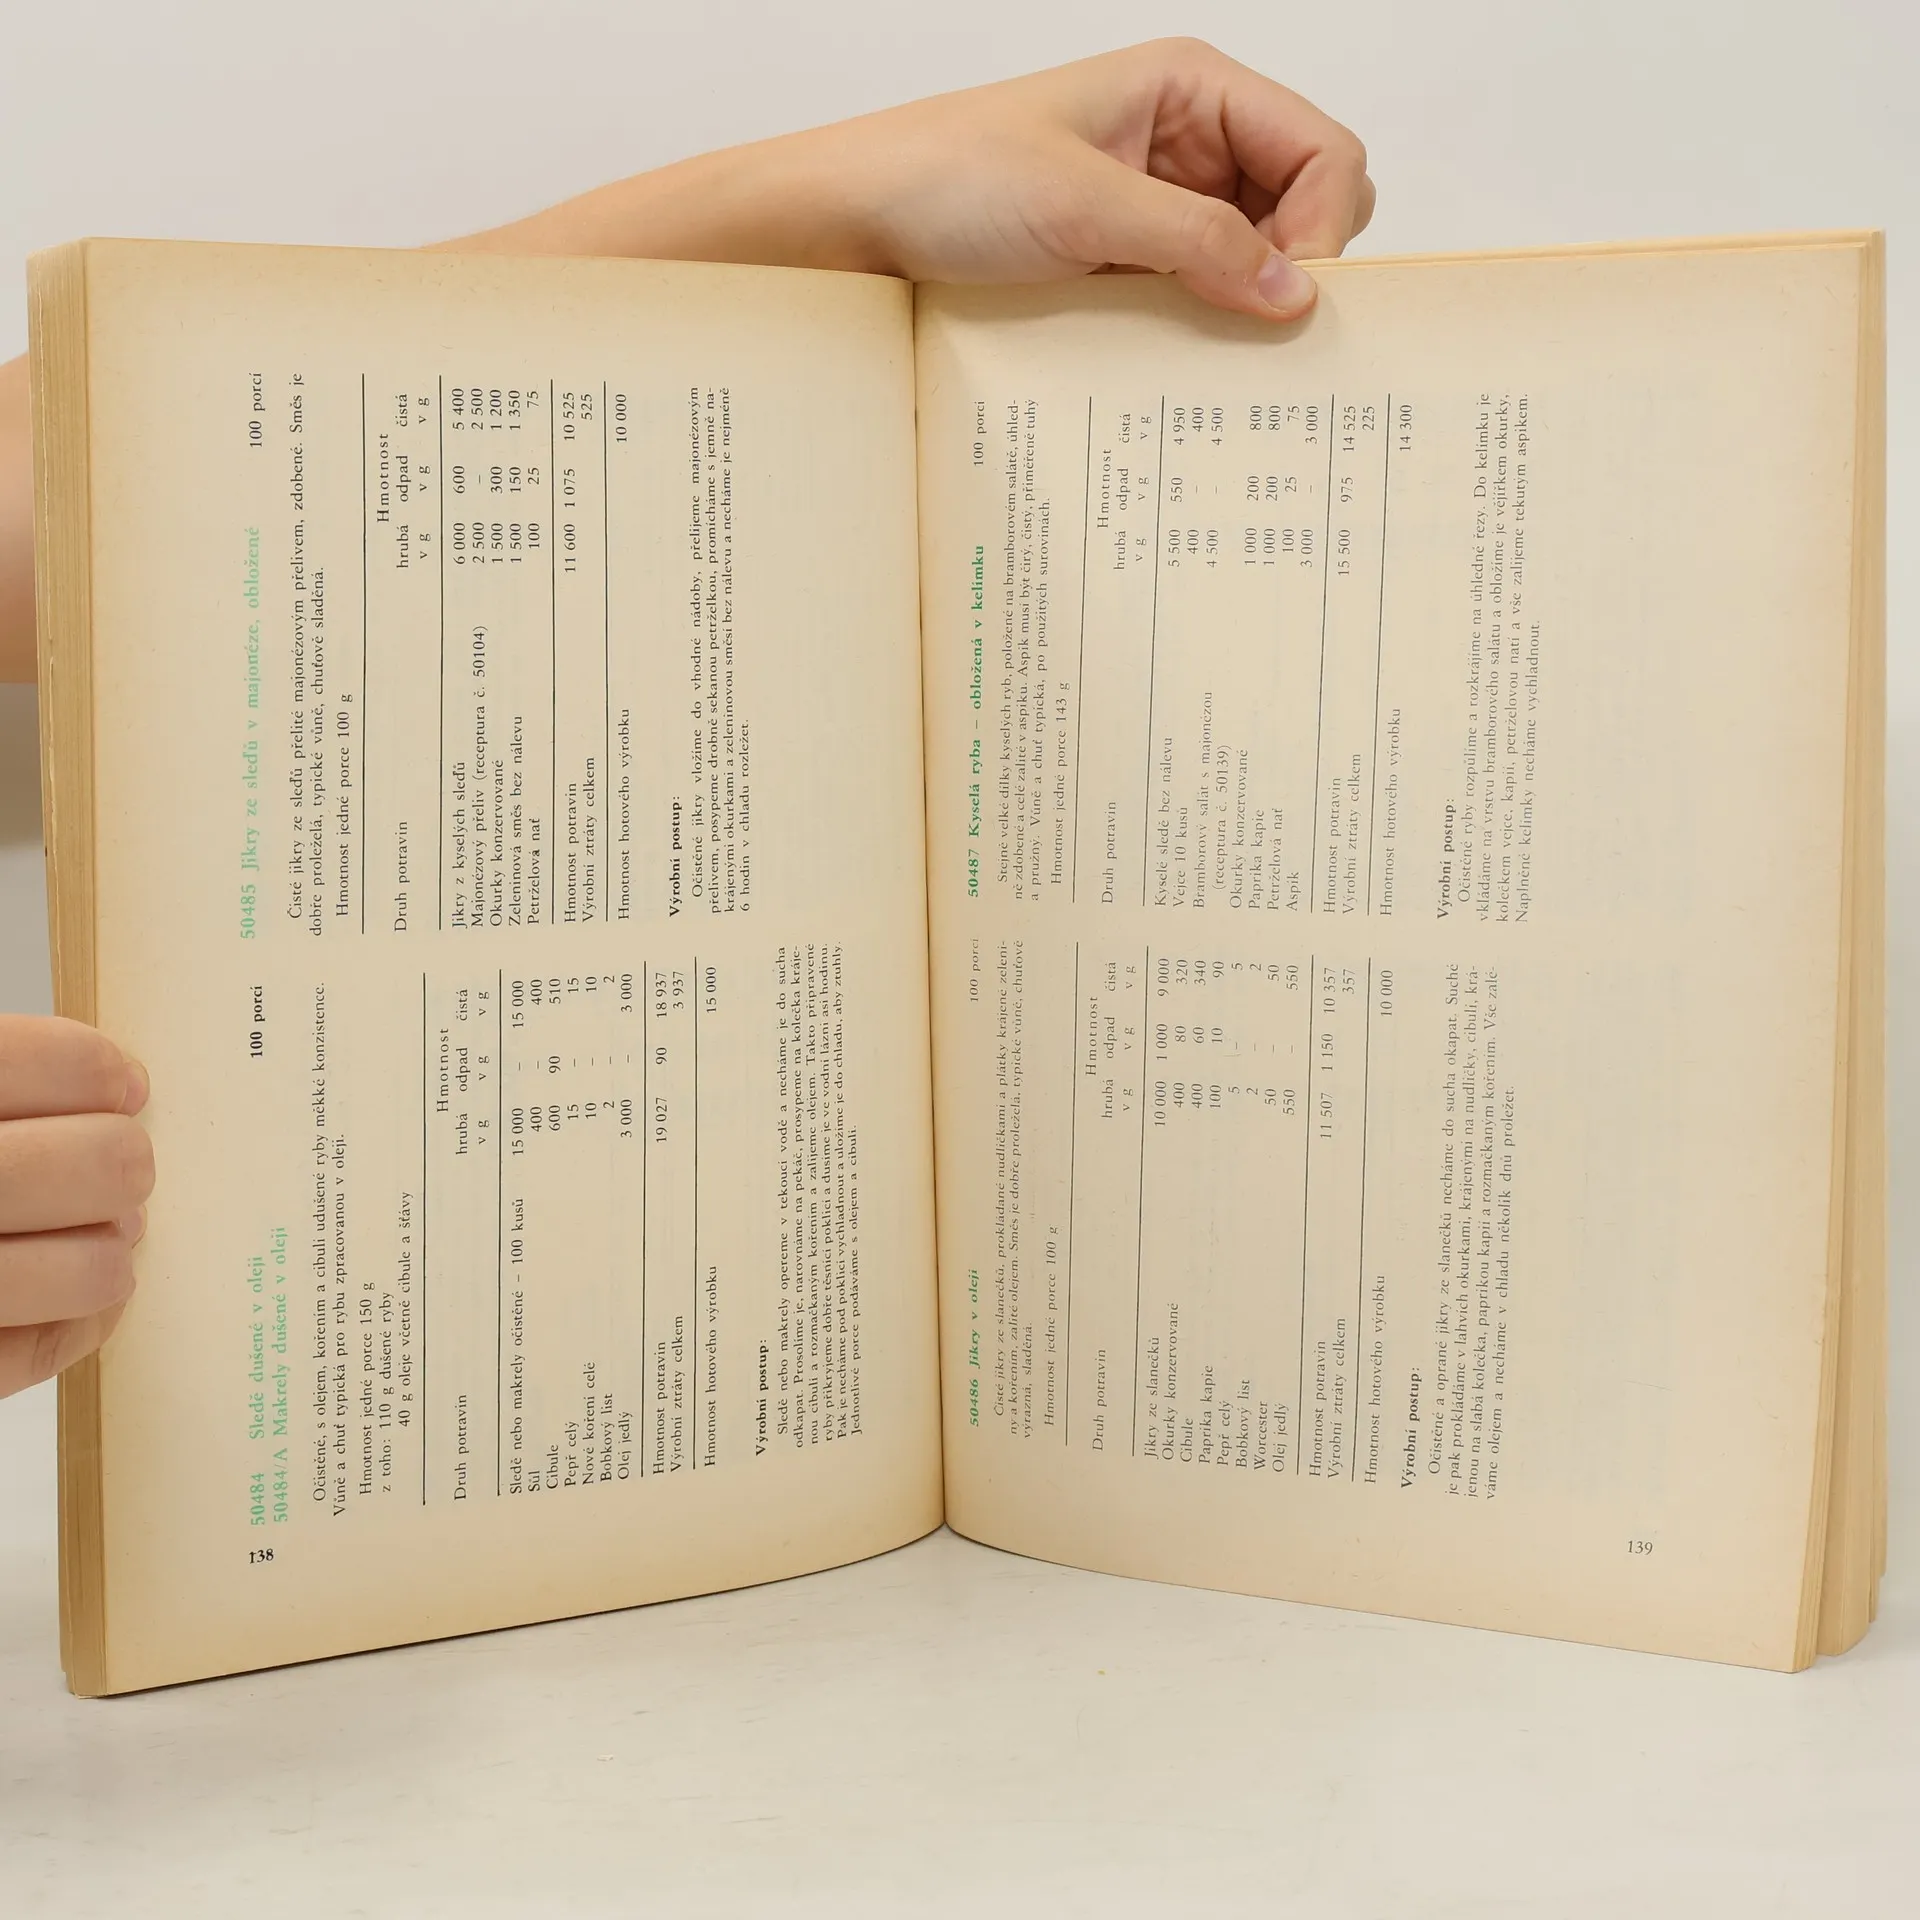 138
50484 Sledě dušené v oleji 100 porcí
50484/A Makrely dušené v oleji
Očistěné, s olejem, kořením a cibulí udušené ryby měkké konzistence.
Vůně a chuť typická pro rybu zpracovanou v oleji.
Hmotnost jedné porce 150 g
z toho: 110 g dušené ryby
40 g oleje včetně cibule a šťávy
Hmotnost
Druh potravin hrubá odpad čistá
v g v g v g
Sledě nebo makrely očistěné – 100 kusů 15 000 – 15 000
Sůl 400 – 400
Cibule 600 90 510
Pepř celý 15 – 15
Nové koření celé 10 – 10
Bobkový list 2 – 2
Olej jedlý 3 000 – 3 000
Hmotnost potravin 19 027 90 18 937
Výrobní ztráty celkem 3 937
Hmotnost hotového výrobku 15 000
Výrobní postup:
Sledě nebo makrely opereme v tekoucí vodě a necháme je do sucha
odkapat. Prosolíme je, narovnáme na pekáč, prosypeme na kolečka kráje-
nou cibulí a rozmačkaným kořením a zalijeme olejem. Takto připravené
ryby přikryjeme dobře těsnící poklicí a dusíme je ve vodní lázni asi hodinu.
Pak je necháme pod poklicí vychladnout a uložíme je do chladu, aby ztuhly.
Jednotlivé porce podáváme s olejem a cibulí.
50485 Jikry ze sleďů v majonéze, obložené 100 porcí
Čisté jikry ze sleďů přelité majonézovým přelivem, zdobené. Směs je
dobře proležela, typické vůně, chuťově sladěná.
Hmotnost jedné porce 100 g
Hmotnost
Druh potravin hrubá odpad čistá
v g v g v g
Jikry z kyselých sleďů 6 000 600 5 400
Majonézový přeliv (receptura č. 50104) 2 500 – 2 500
Okurky konzervované 1 500 300 1 200
Zeleninová směs bez nálevu 1 500 150 1 350
Petrželová nať 100 25 75
Hmotnost potravin 11 600 1 075 10 525
Výrobní ztráty celkem 525
Hmotnost hotového výrobku 10 000
Výrobní postup:
Očistěné jikry vložíme do vhodné nádoby, přelijeme majonézovým
přelivem, posypeme drobně sekanou petrželkou, promícháme s jemně na-
krájenými okurkami a zeleninovou směsí bez nálevu a necháme je nejméně
6 hodin v chladu rozležet.
50486 Jikry v oleji 100 porcí
Čisté jikry ze slanečků, prokládané nudličkami a plátky krájené zeleni-
ny a kořením, zalité olejem. Směs je dobře proležela, typické vůně, chuťově
výrazná, sladěná.
Hmotnost jedné porce 100 g
Hmotnost
Druh potravin hrubá odpad čistá
v g v g v g
Jikry ze slanečků 10 000 1 000 9 000
Okurky konzervované 400 80 320
Cibule 400 60 340
Paprika kapie 100 10 90
Pepř celý 5 – 5
Bobkový list 2 – 2
Worcester 50 – 50
Olej jedlý 550 – 550
Hmotnost potravin 11 507 1 150 10 357
Výrobní ztráty celkem 357
Hmotnost hotového výrobku 10 000
Výrobní postup:
Očistěné a oprané jikry ze slanečků necháme do sucha okapat. Suché
je pak prokládáme v lahvích okurkami, krájenými na nudličky, cibulí, krá-
jenou na slabá kolečka, paprikou kapií a rozmačkaným kořením. Vše zalé-
váme olejem a necháme v chladu několik dnů proležet.
50487 Kyselá ryba – obložená v kelímku 100 porcí
Stejně velké dílky kyselých ryb, položené na bramborovém salátě, úhled-
ně zdobené a celé zalité v aspiku. Aspik musí být čirý, čistý, přiměřeně tuhý
a pružný. Vůně a chuť typická, po použitých surovinách.
Hmotnost jedné porce 143 g
Hmotnost
Druh potravin hrubá odpad čistá
v g v g v g
Kyselé sledě bez nálevu 5 500 550 4 950
Vejce 10 kusů 400 – 400
Bramborový salát s majonézou 4 500 – 4 500
(receptura č. 50139)
Okurky konzervované 1 000 200 800
Paprika kapie 1 000 200 800
Petrželová nať 100 25 75
Aspik 3 000 – 3 000
Hmotnost potravin 15 500 975 14 525
Výrobní ztráty celkem 225
Hmotnost hotového výrobku 14 300
Výrobní postup:
Očistěné ryby rozpůlíme a rozkrájíme na úhledné řezy. Do kelímku je
vkládáme na vrstvu bramborového salátu a obložíme je vějířkem okurky,
kolečkem vejce, kapií, petrželovou natí a vše zalijeme tekutým aspikem.
Naplněné kelímky necháme vychladnout.
139